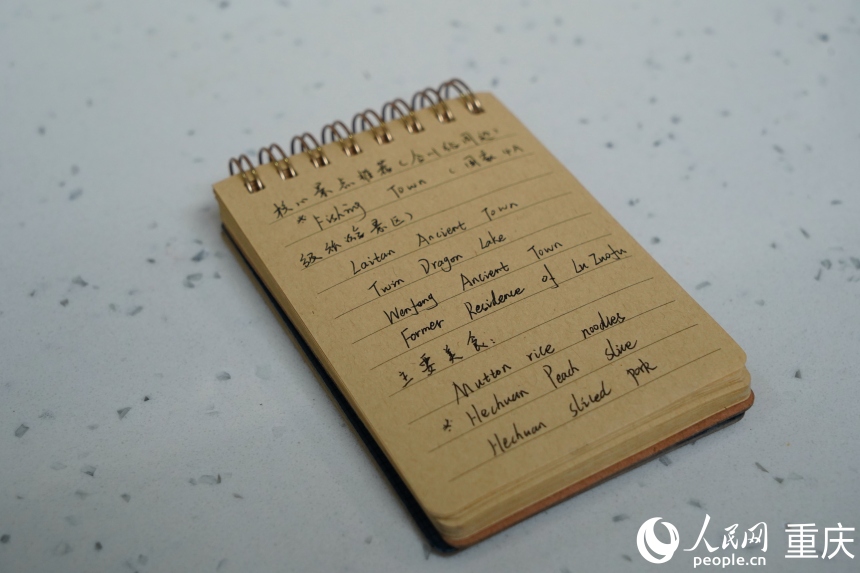 核心景点推荐（合川结周边）
* Fishing Town （国家4A
级旅游景区）
Laitan Ancient Town
Twin Dragon Lake
Wenfeng Ancient Town
Former Residence of Lu Zuofu
主要美食：
Mutton rice noodles
* Hechuan Peach slice
Hechuan sliced pork
人民网 重庆
people.cn